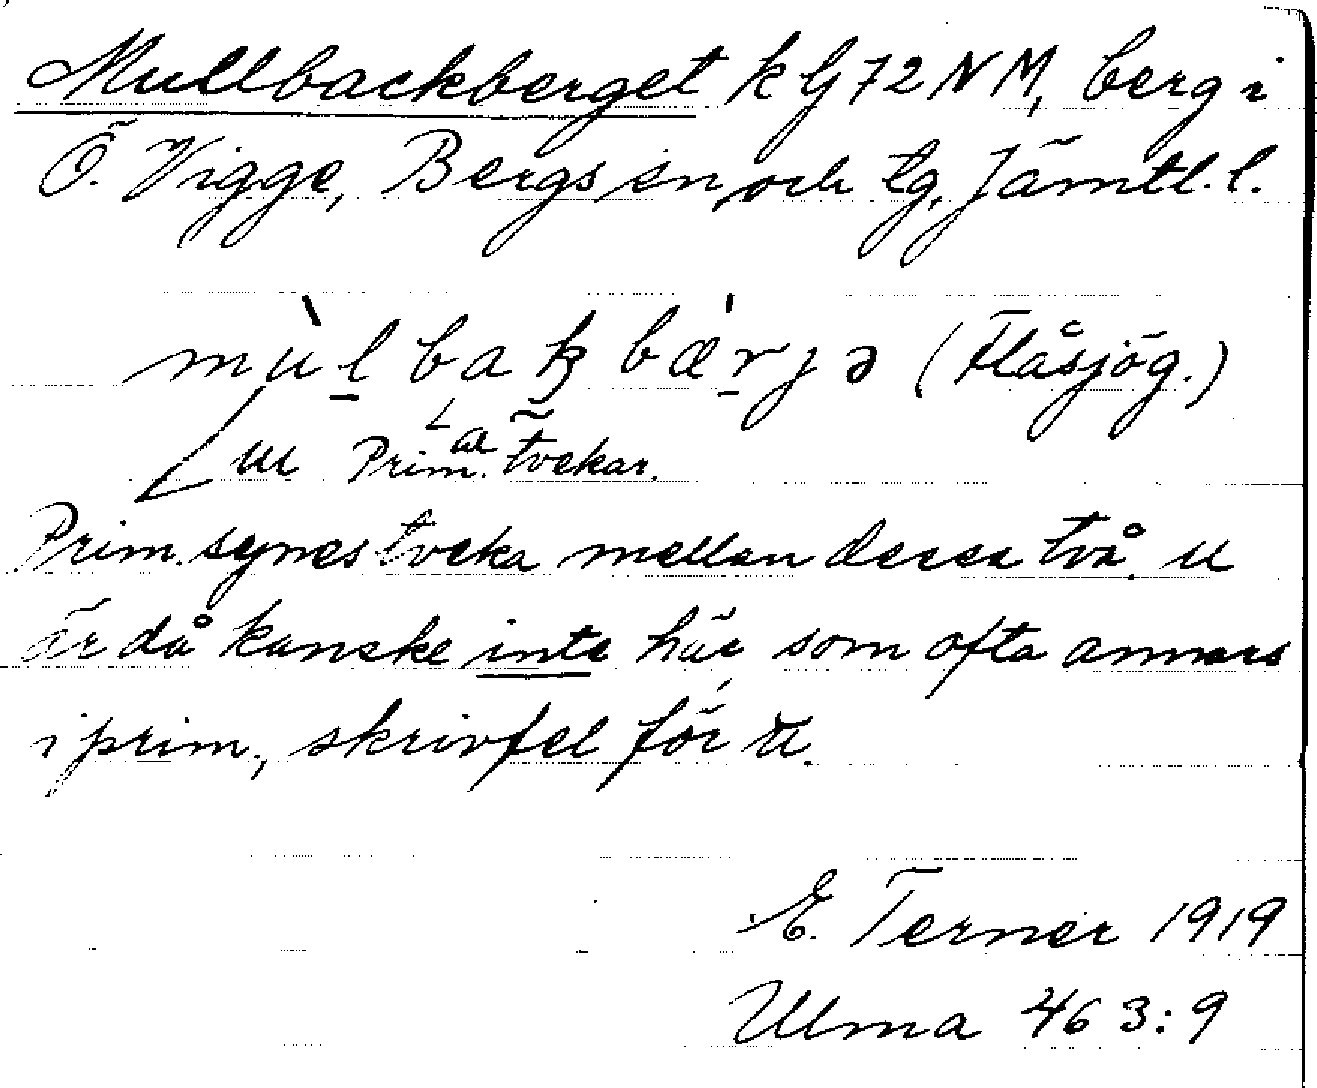 Mullbackberget k G 72 NM, berg i
Ö. Vigge, Bergs sn och tg, Jämtl. l.
mùl bak bærjə (Flåsjög.)
u Prim. tvekar.
Prim. synes tveka mellan dessa två. u
är då kanske inte här, som ofta annars
i prim., skrivfel för
E. Terner 1919
Ulma 463:9